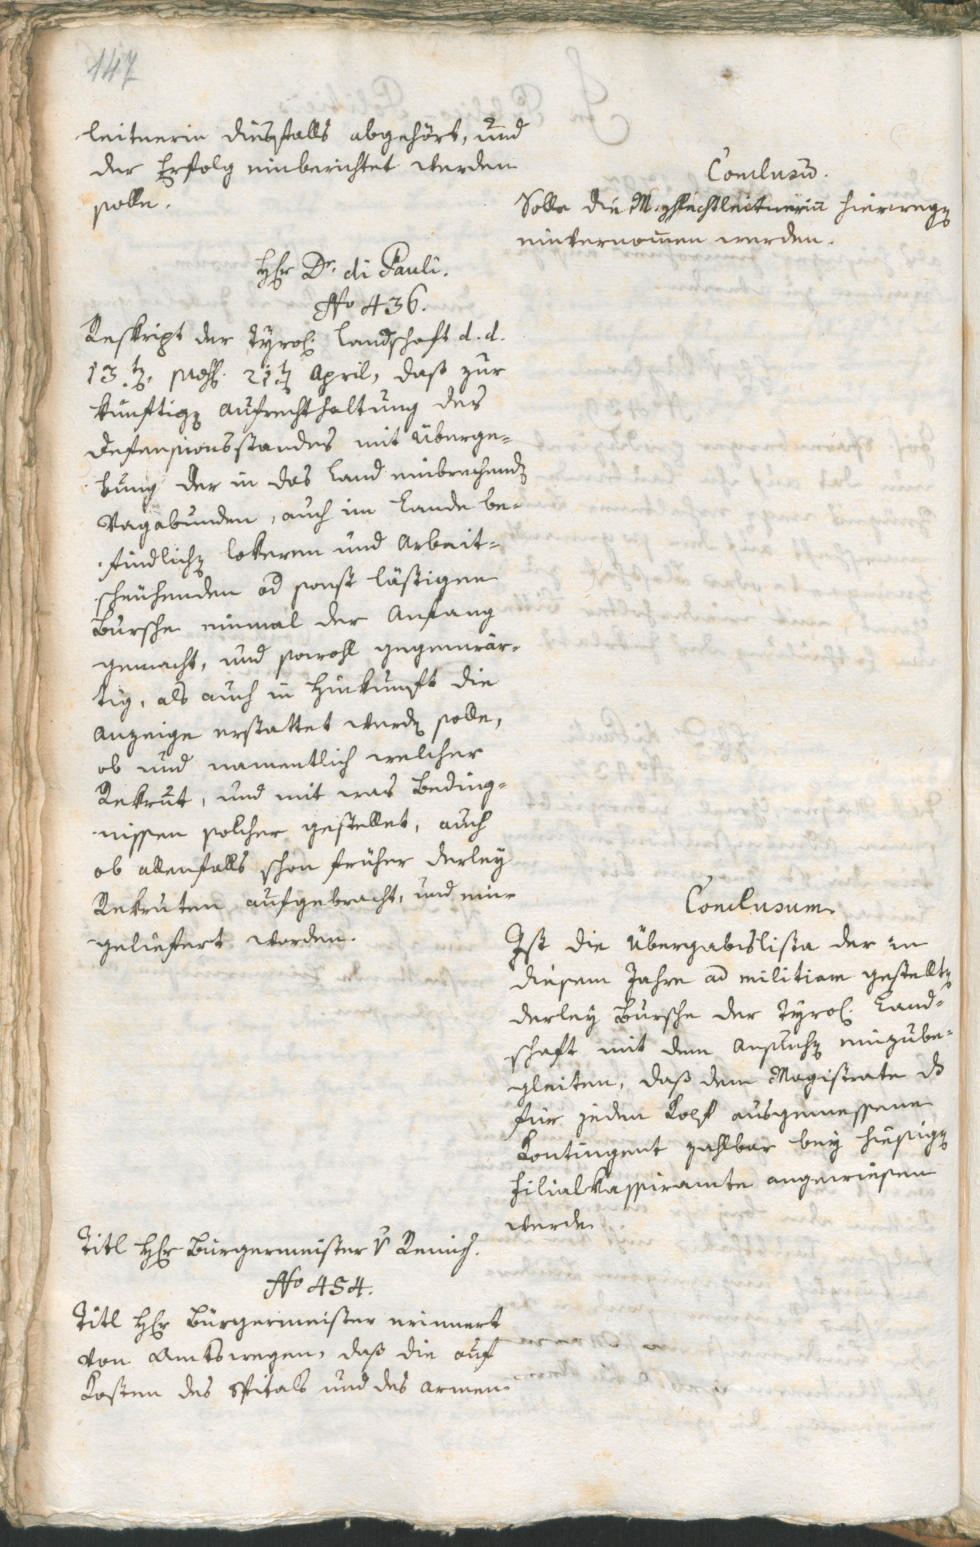 147
leitnerin diesfalls abgehört, und
der Erfolg einberichtet werden
solle.
Conclusū.
Solle die hierwegen
einvernomen werden.
Hr Dr. di Pauli.
No 436.
Reskript der Tyrol. Landschaft d. d.
13.t, präs. 21t April, daß zur
künftigen Aufrechthaltung des
Defensionsstandes mit Überge-
bung der in das Land einbrechenden
Vagabunden, auch im Lande be-
findlichen lokeren und Arbeit-
scheuhenden od sonst lästigen
Bursche einmal der Anfang
gemacht, und sowohl gegenwär-
tig, als auch in Hinkunft die
Anzeige erstattet werden solle,
ob und namentlich welcher
Rekrut, und mit was Beding-
nissen solcher gestellet, auch
ob allenfalls schon früher derley
Rekruten aufgebracht, und ein-
geliefert worden.
Conclusum.
Ist die Übergabislista der in
diesem Jahre ad militiam gestellten
derley Bursche der Tyrol. Land-
schaft mit dem Ansuchen einzube-
gleiten, daß dem Magistrate ds
für jeden Kopf ausgemessene
Kontingent zahlbar bey hiesigen
Filialkassieramte angewiesen
werde
Titl Hr Bürgermeister v Remich.
No 454.
Titl Hr Bürgermeister erinnert
von Amtswegen, daß die auf
Kosten des Spitals und des Armen-